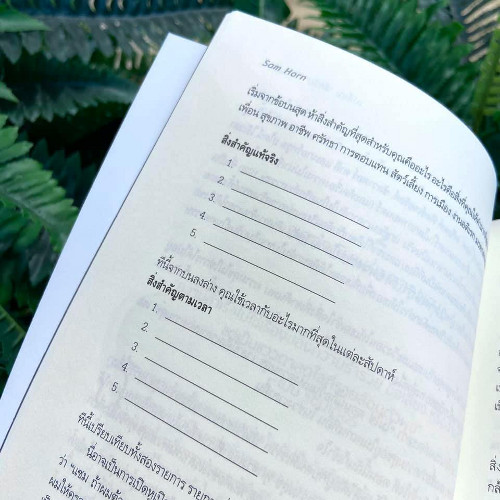 Sam Horn
เริ่มจากข้อบนสุด ห้าสิ่งสำคัญที่สุดสำหรับคุณคืออะไร อะไรคือสิ่งที่คุณให้
เพื่อน สุขภาพ อาชีพ ศรัทธา การตอบแทน สัตว์เลี้ยง การเมือง งานอดิเรก
สิ่งสำคัญแท้จริง
1.
2.
3.
4.
5.
ทีนี้จากบนลงล่าง คุณใช้เวลากับอะไรมากที่สุดในแต่ละสัปดาห์
สิ่งสำคัญตามเวลา
1.
2.
3.
4.
5.
ทีนี้เปรียบเทียบทั้งสองรายการ
นี่อาจเป็นการเปิดหูเปิด
ว่า "แซม ถ้าผม